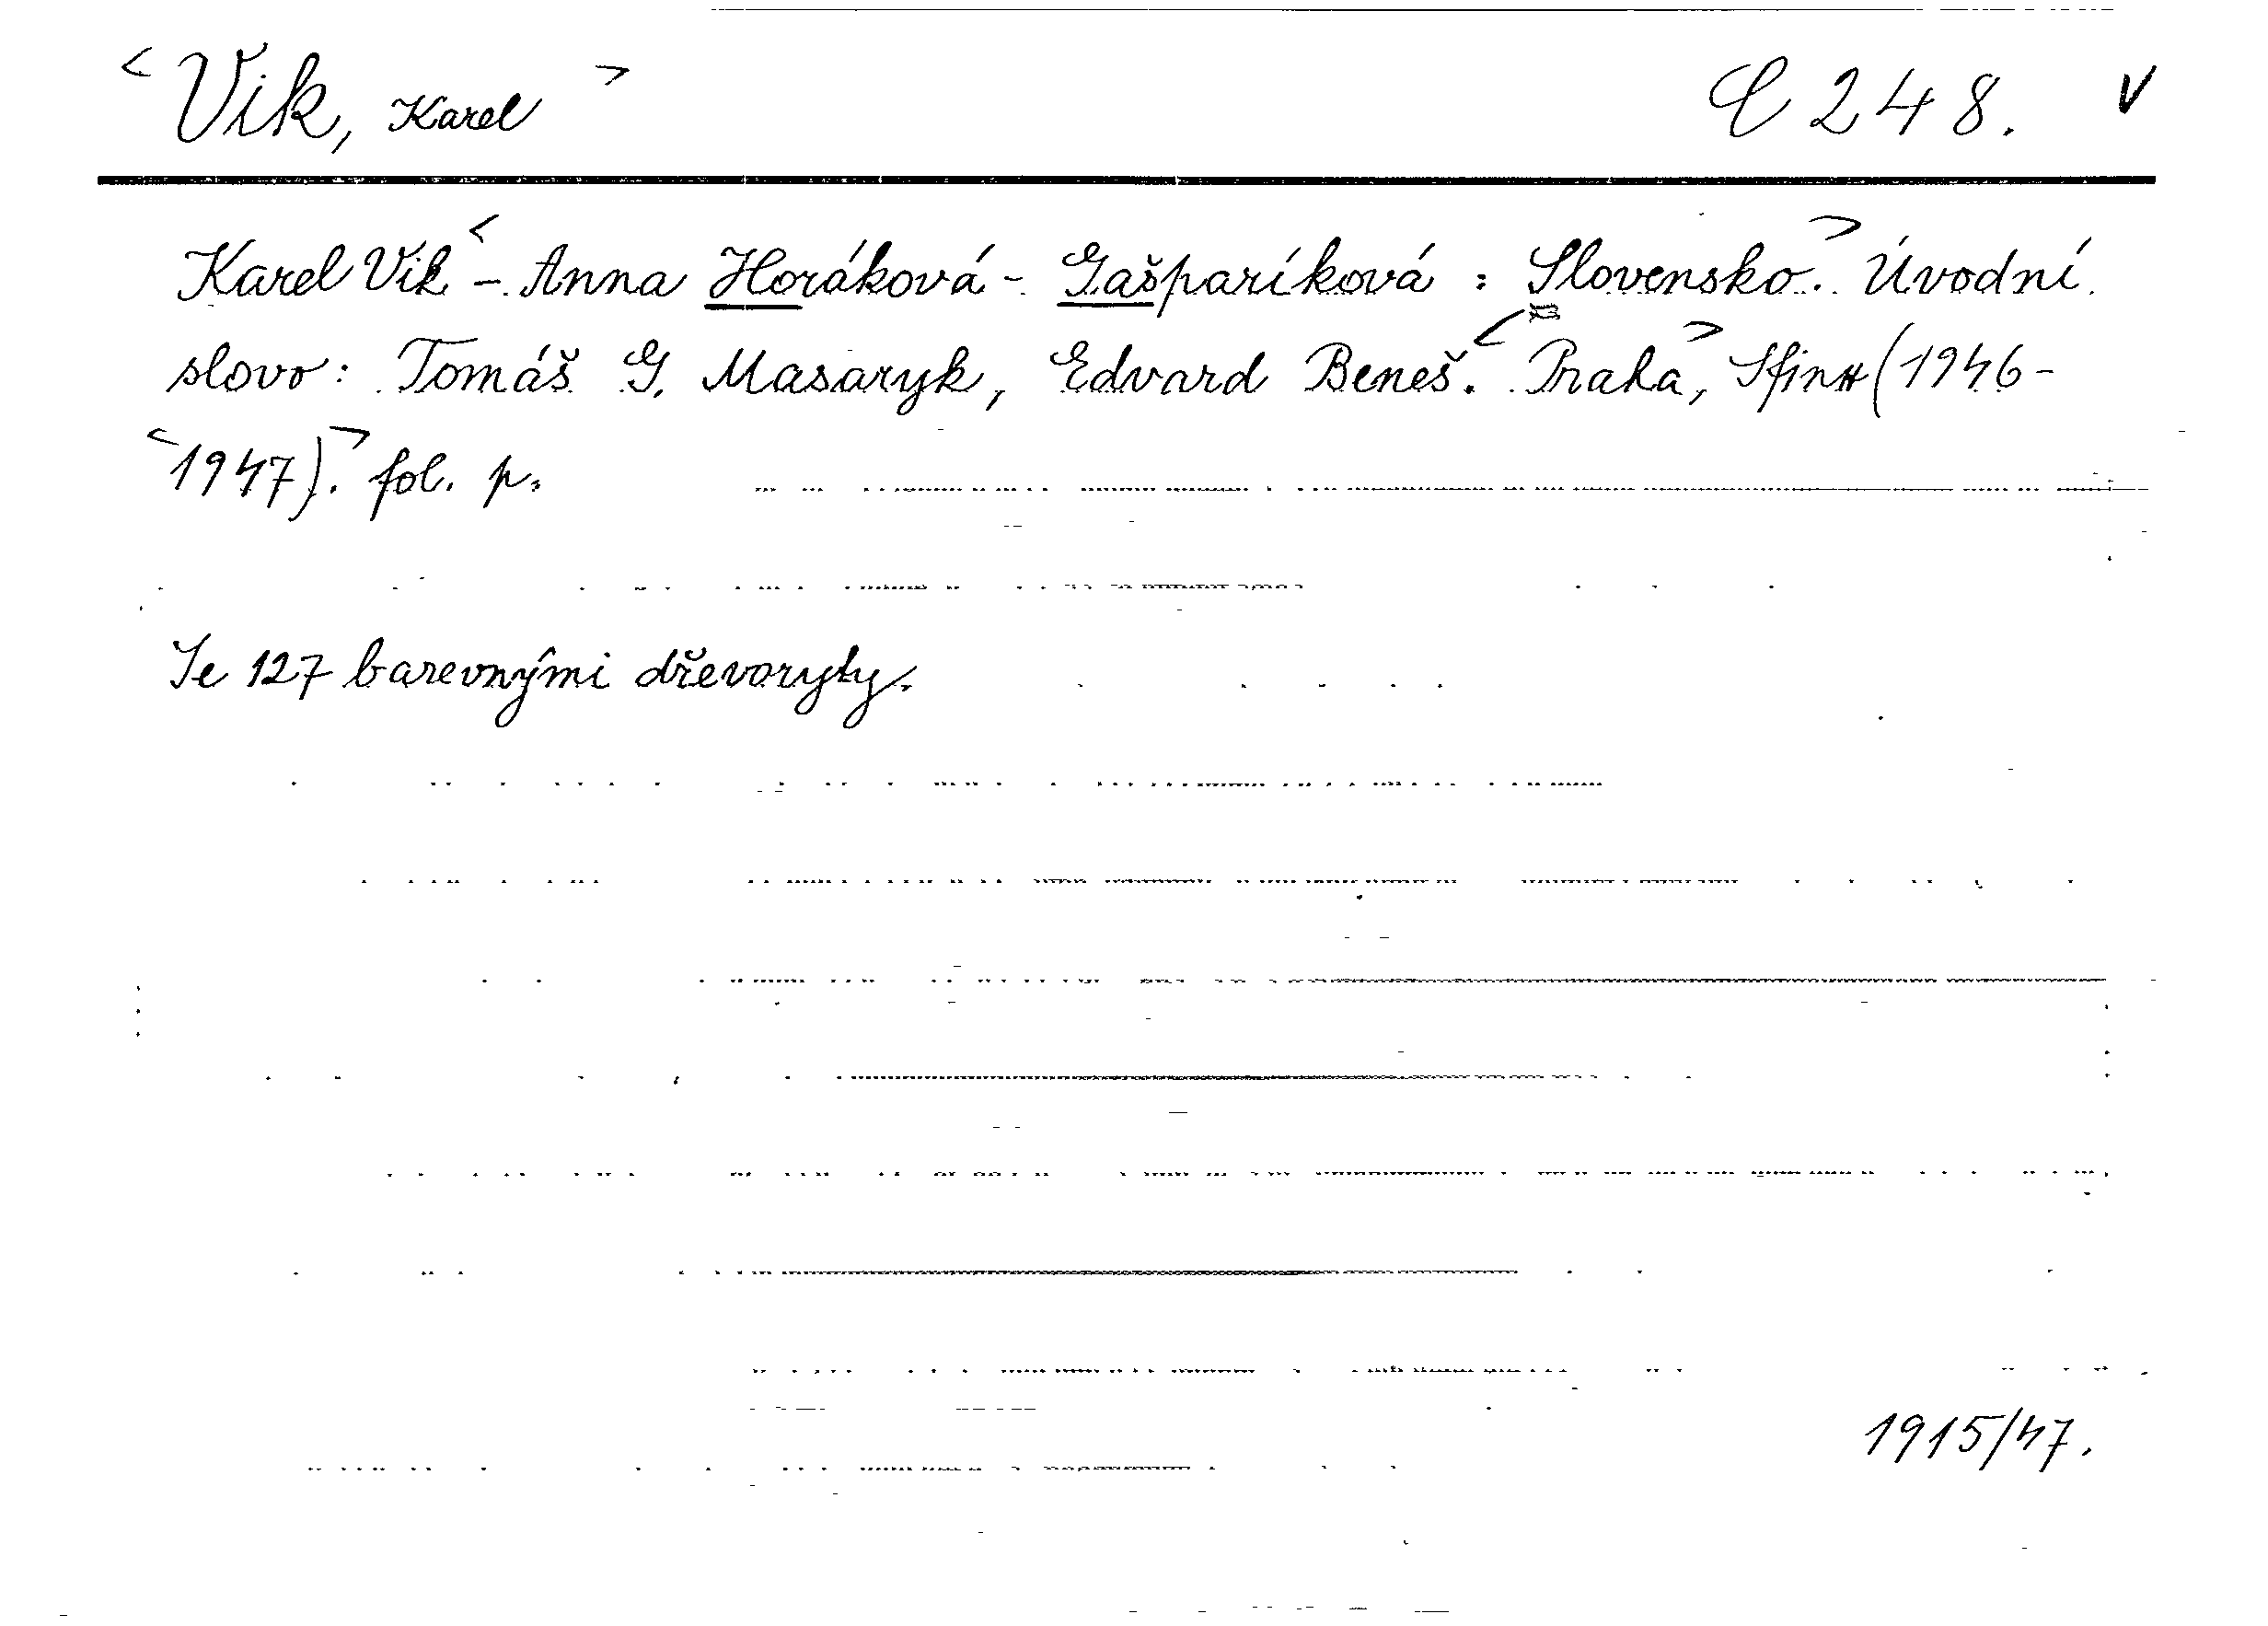 <Vik, Karel> C 248. V
Karel Vik <- Anna Horáková - Gašparíková : Slovensko.> Úvodní
slovo: Tomáš G. Masaryk, Edvard Beneš. <Praha>, Sfinx (1946-
<1947).> fol. p.
Se 127 barevnými dřevoryty.
1915/47.